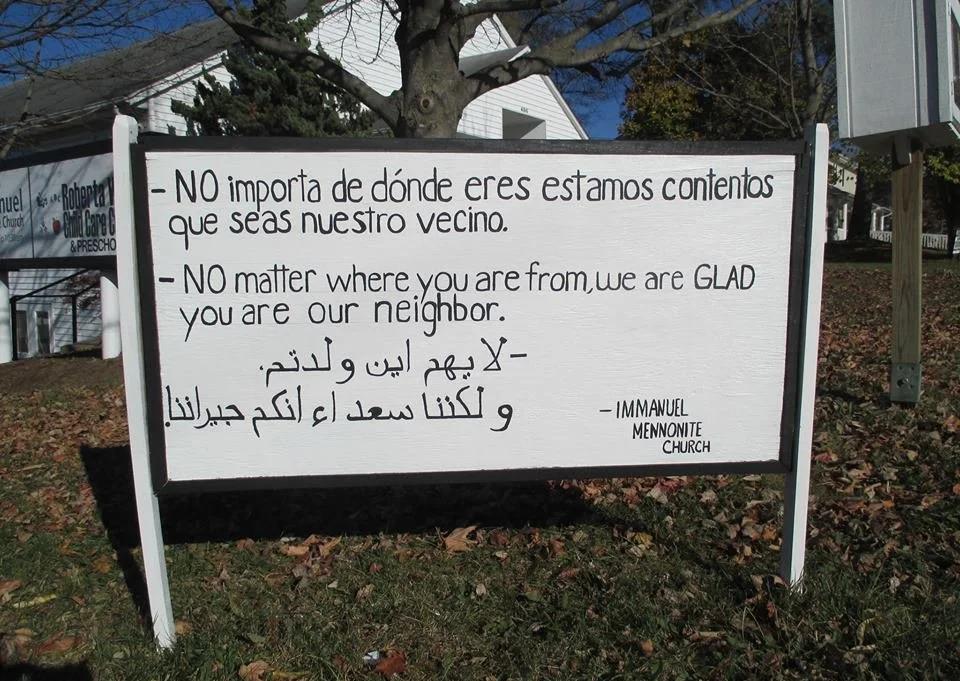 - NO importa de dónde eres estamos contentos
que seas nuestro vecino.
- NO matter where you are from, we are GLAD
you are our neighbor.
- لا يهم اين ولدتم.
و لكننا سعداء انكم جيراننا!
- IMMANUEL
MENNONITE
CHURCH
nuel
Church
Roberta
Child Care C
& PRESCHO